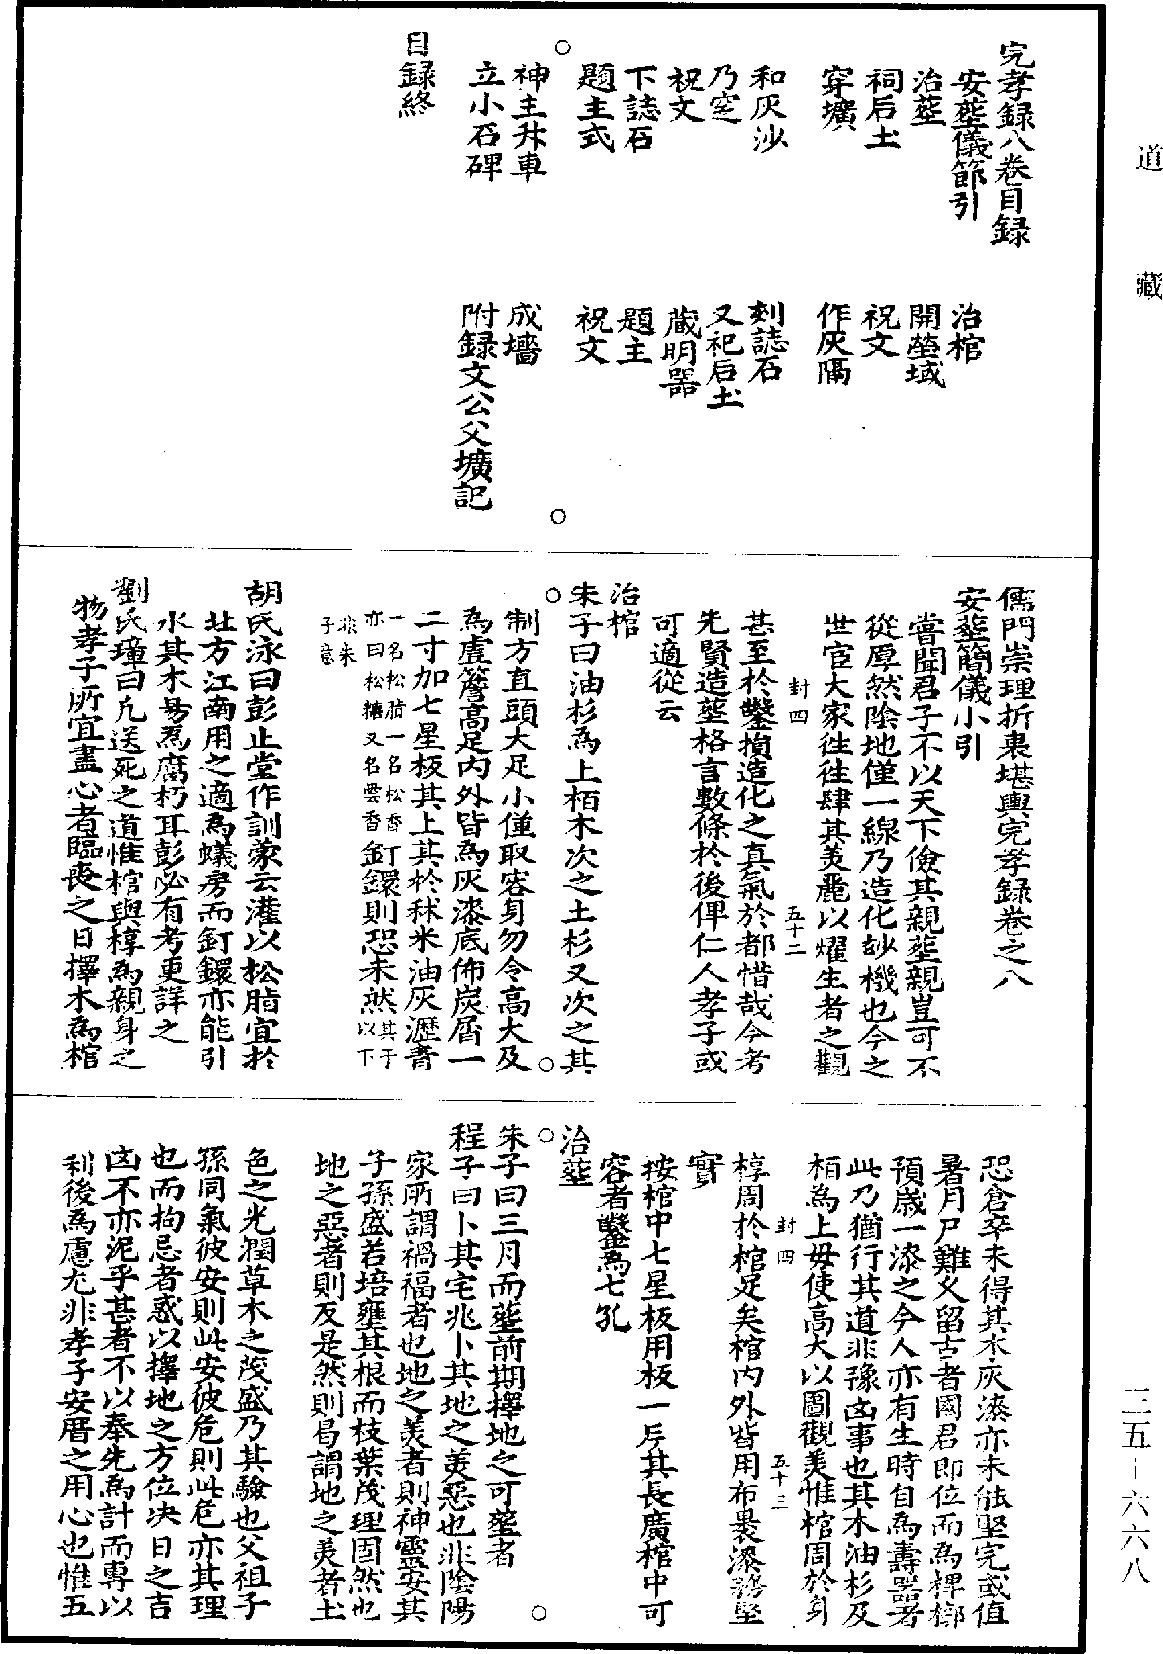 道藏
完孝録八卷目録
安塟儀節引　治棺
治塟　開塋域
祠后土　祝文
穿壙　作灰隔
和灰沙　刻誌石
乃窆　又祀后土
祝文　蔵明器
下誌石　題主
題主式　祝文
神主升車　成墻
立小石碑　附録文公父壙記
目録終
儒門崇理折衷堪輿完孝録卷之八
安塟簡儀小引
嘗聞君子不以天下儉其親塟親豈可不
從厚然陰地僅一線乃造化玅機也今之
世宦大家徃徃肆其美麗以耀生者之觀
封四　五十二
甚至於鑿損造化之真氣於都惜哉今考
先賢造塟格言數條於後俾仁人孝子或
可適從云
治棺
朱子曰油杉為上栢木次之土杉又次之其
制方直頭大足小僅取容身勿令高大及
為虚簷高足内外皆為灰漆底佈炭屑一
二寸加七星板其上其於秫米油灰瀝青
一名松脂一名松香
亦曰松糖又名雲香釘鐶則恐未然其于以下
非朱子意
胡氏泳曰彭止堂作訓蒙云灌以松脂宜於
北方江南用之適為蟻房而釘鐶亦能引
水其木易為腐朽耳彭必有考更詳之
劉氏璋曰凢送死之道惟棺與椁為親身之
物孝子所宜盡心者臨喪之日擇木為棺
恐倉卒未得其木灰漆亦未能堅完或值
暑月尸難乆留古者國君即位而為椑槨
預歲一漆之今人亦有生時自為壽器者
此乃猶行其道非豫凶事也其木油杉及
栢為上毋使高大以圖觀美惟棺周於身
封四　五十三
椁周於棺足矣棺内外皆用布裹漆務堅
實
按棺中七星板用板一片其長廣棺中可
容者鑿為七孔
治塟
朱子曰三月而塟前期擇地之可塟者
程子曰卜其宅兆卜其地之美惡也非陰陽
家所謂禍福者也地之美者則神靈安其
子孫盛若培壅其根而枝葉茂理固然也
地之惡者則反是然則曷謂地之美者土
色之光潤草木之茂盛乃其驗也父祖子
孫同氣彼安則此安彼危則此危亦其理
也而拘忌者惑以擇地之方位决日之吉
凶不亦泥乎甚者不以奉先為計而專以
利後為慮尤非孝子安厝之用心也惟五
三五－六六八